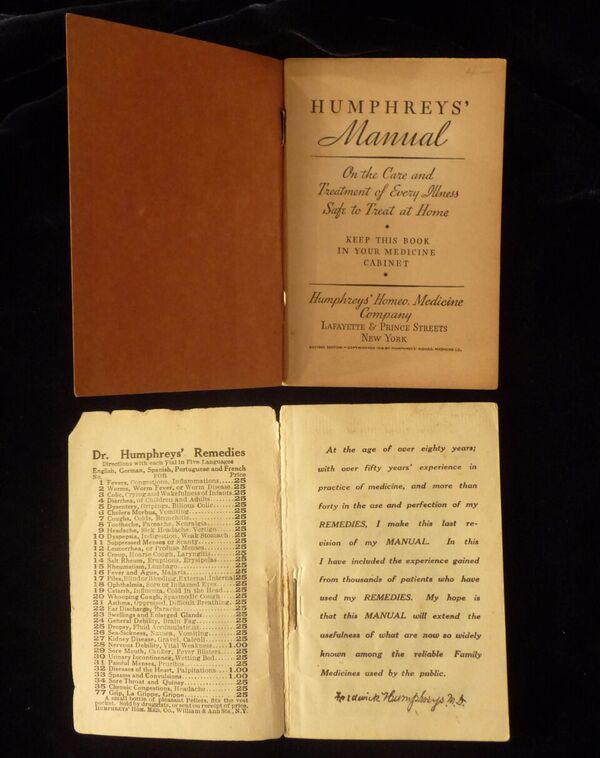 HUMPHREYS'
Manual
On the Care and
Treatment of Every Illness
Safe to Treat at Home
KEEP THIS BOOK
IN YOUR MEDICINE
CABINET
Humphreys' Homeo. Medicine
Company
LAFAYETTE & PRINCE STREETS
NEW YORK
Dr. Humphreys' Remedies
Directions with each Vial in Five Languages
English, German, Spanish, Portuguese and French
No. FOR Price
1 Fevers, Congestions, Inflammations....25
2 Worms, Worm Fever, or Worm Disease..25
3 Colic, Crying and Wakefulness of Infants.25
4 Diarrhea, of Children and Adults........25
5 Dysentery, Gripings, Bilious Colic......25
6 Cholera Morbus, Vomiting..............25
7 Coughs, Colds, Bronchitis..............25
8 Toothache, Faceache, Neuralgia........25
9 Headache, Sick Headache, Vertigo......25
10 Dyspepsia, Indigestion, Weak Stomach..25
11 Suppressed Menses or Scanty...........25
12 Leucorrhea, or Profuse Menses.........25
13 Croup, Hoarse Cough, Laryngitis.......25
14 Salt Rheum, Eruptions, Erysipelas......25
15 Rheumatism, Lumbago..................25
16 Fever and Ague, Malaria................25
17 Piles, Blind or Bleeding, External, Internal 25
18 Ophthalmia, Sore or Inflamed Eyes.....25
19 Catarrh, Influenza, Cold in the Head....25
20 Whooping Cough, Spasmodic Cough....25
21 Asthma, Oppressed, Difficult Breathing..25
22 Ear Discharge, Earache.................25
23 Swellings and Enlarged Glands.........25
24 General Debility, Brain Fag............25
25 Dropsy, Fluid Accumulations...........25
26 Sea-Sickness, Nausea, Vomiting........25
27 Kidney Disease, Gravel, Calculi.........25
28 Nervous Debility, Vital Weakness.....1.00
29 Sore Mouth, Canker, Fever Blisters.....25
30 Urinary Incontinence, Wetting Bed.....25
31 Painful Menses, Pruritus................25
32 Diseases of the Heart, Palpitations....1.00
33 Spasms and Convulsions..............1.00
34 Sore Throat and Quinsy................25
35 Chronic Congestions, Headache........25
77 Grip, La Grippe, Grippe................25
A small bottle of pleasant Pellets, fits the vest
pocket. Sold by druggists, or sent on receipt of price.
HUMPHREYS' HOM. MED. CO., William & Ann Sts., N.Y.
At the age of over eighty years;
with over fifty years' experience in
practice of medicine, and more than
forty in the use and perfection of my
REMEDIES, I make this last re-
vision of my MANUAL. In this
I have included the experience gained
from thousands of patients who have
used my REMEDIES. My hope is
that this MANUAL will extend the
usefulness of what are now so widely
known among the reliable Family
Medicines used by the public.
Frederick Humphreys M.D.